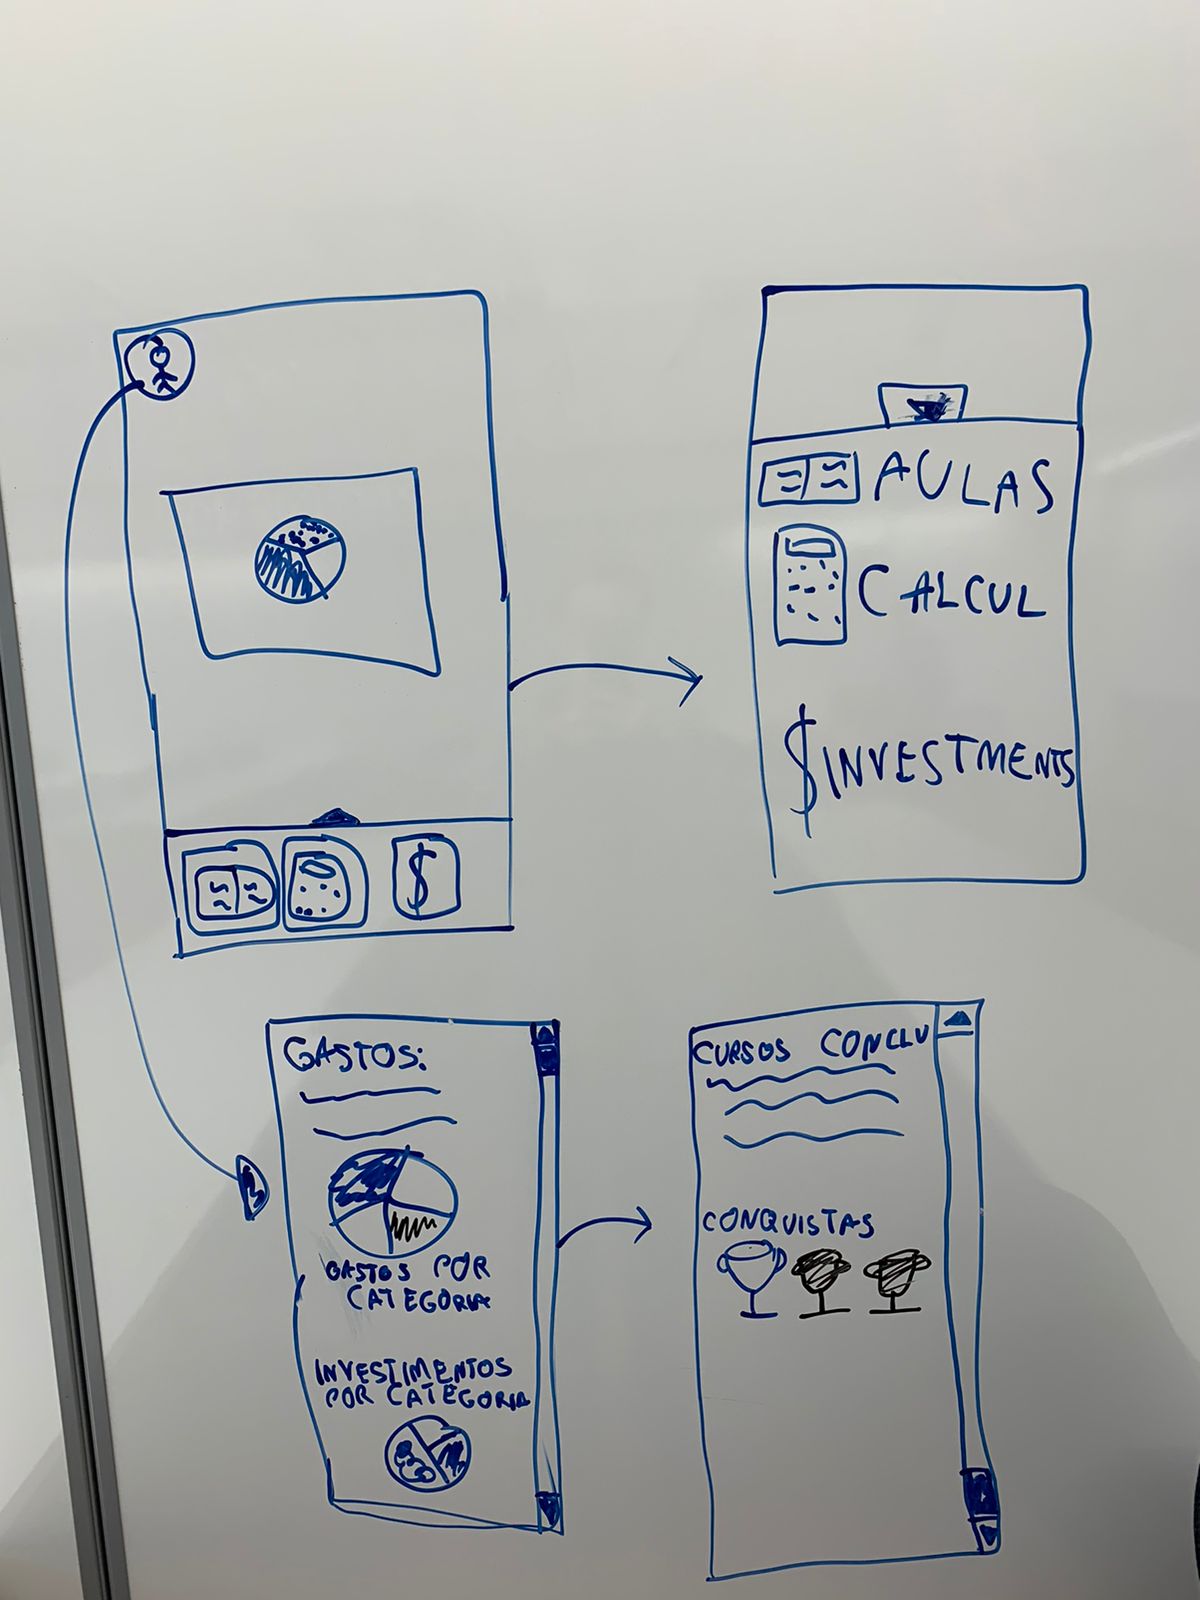 AULAS
CALCUL
$INVESTMENTS
$
GASTOS:
GASTOS POR
CATEGORIA
INVESTIMENTOS
POR CATEGORIA
CURSOS CONCLU
CONQUISTAS